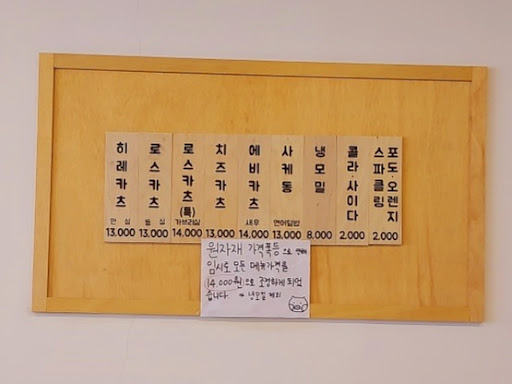 히레카츠
안심
13,000
로스카츠
등심
13,000
로스카츠(특)
가브리살
14,000
치즈카츠
13,000
에비카츠
새우
14,000
사케동
연어덮밥
13,000
냉모밀
8,000
콜라·사이다
2,000
포도·오렌지
스파클링
2,000
원자재 가격폭등으로 인해
임시로 모든 메뉴가격을
14,000원으로 조정하게 되었
습니다. * 냉모밀 제외